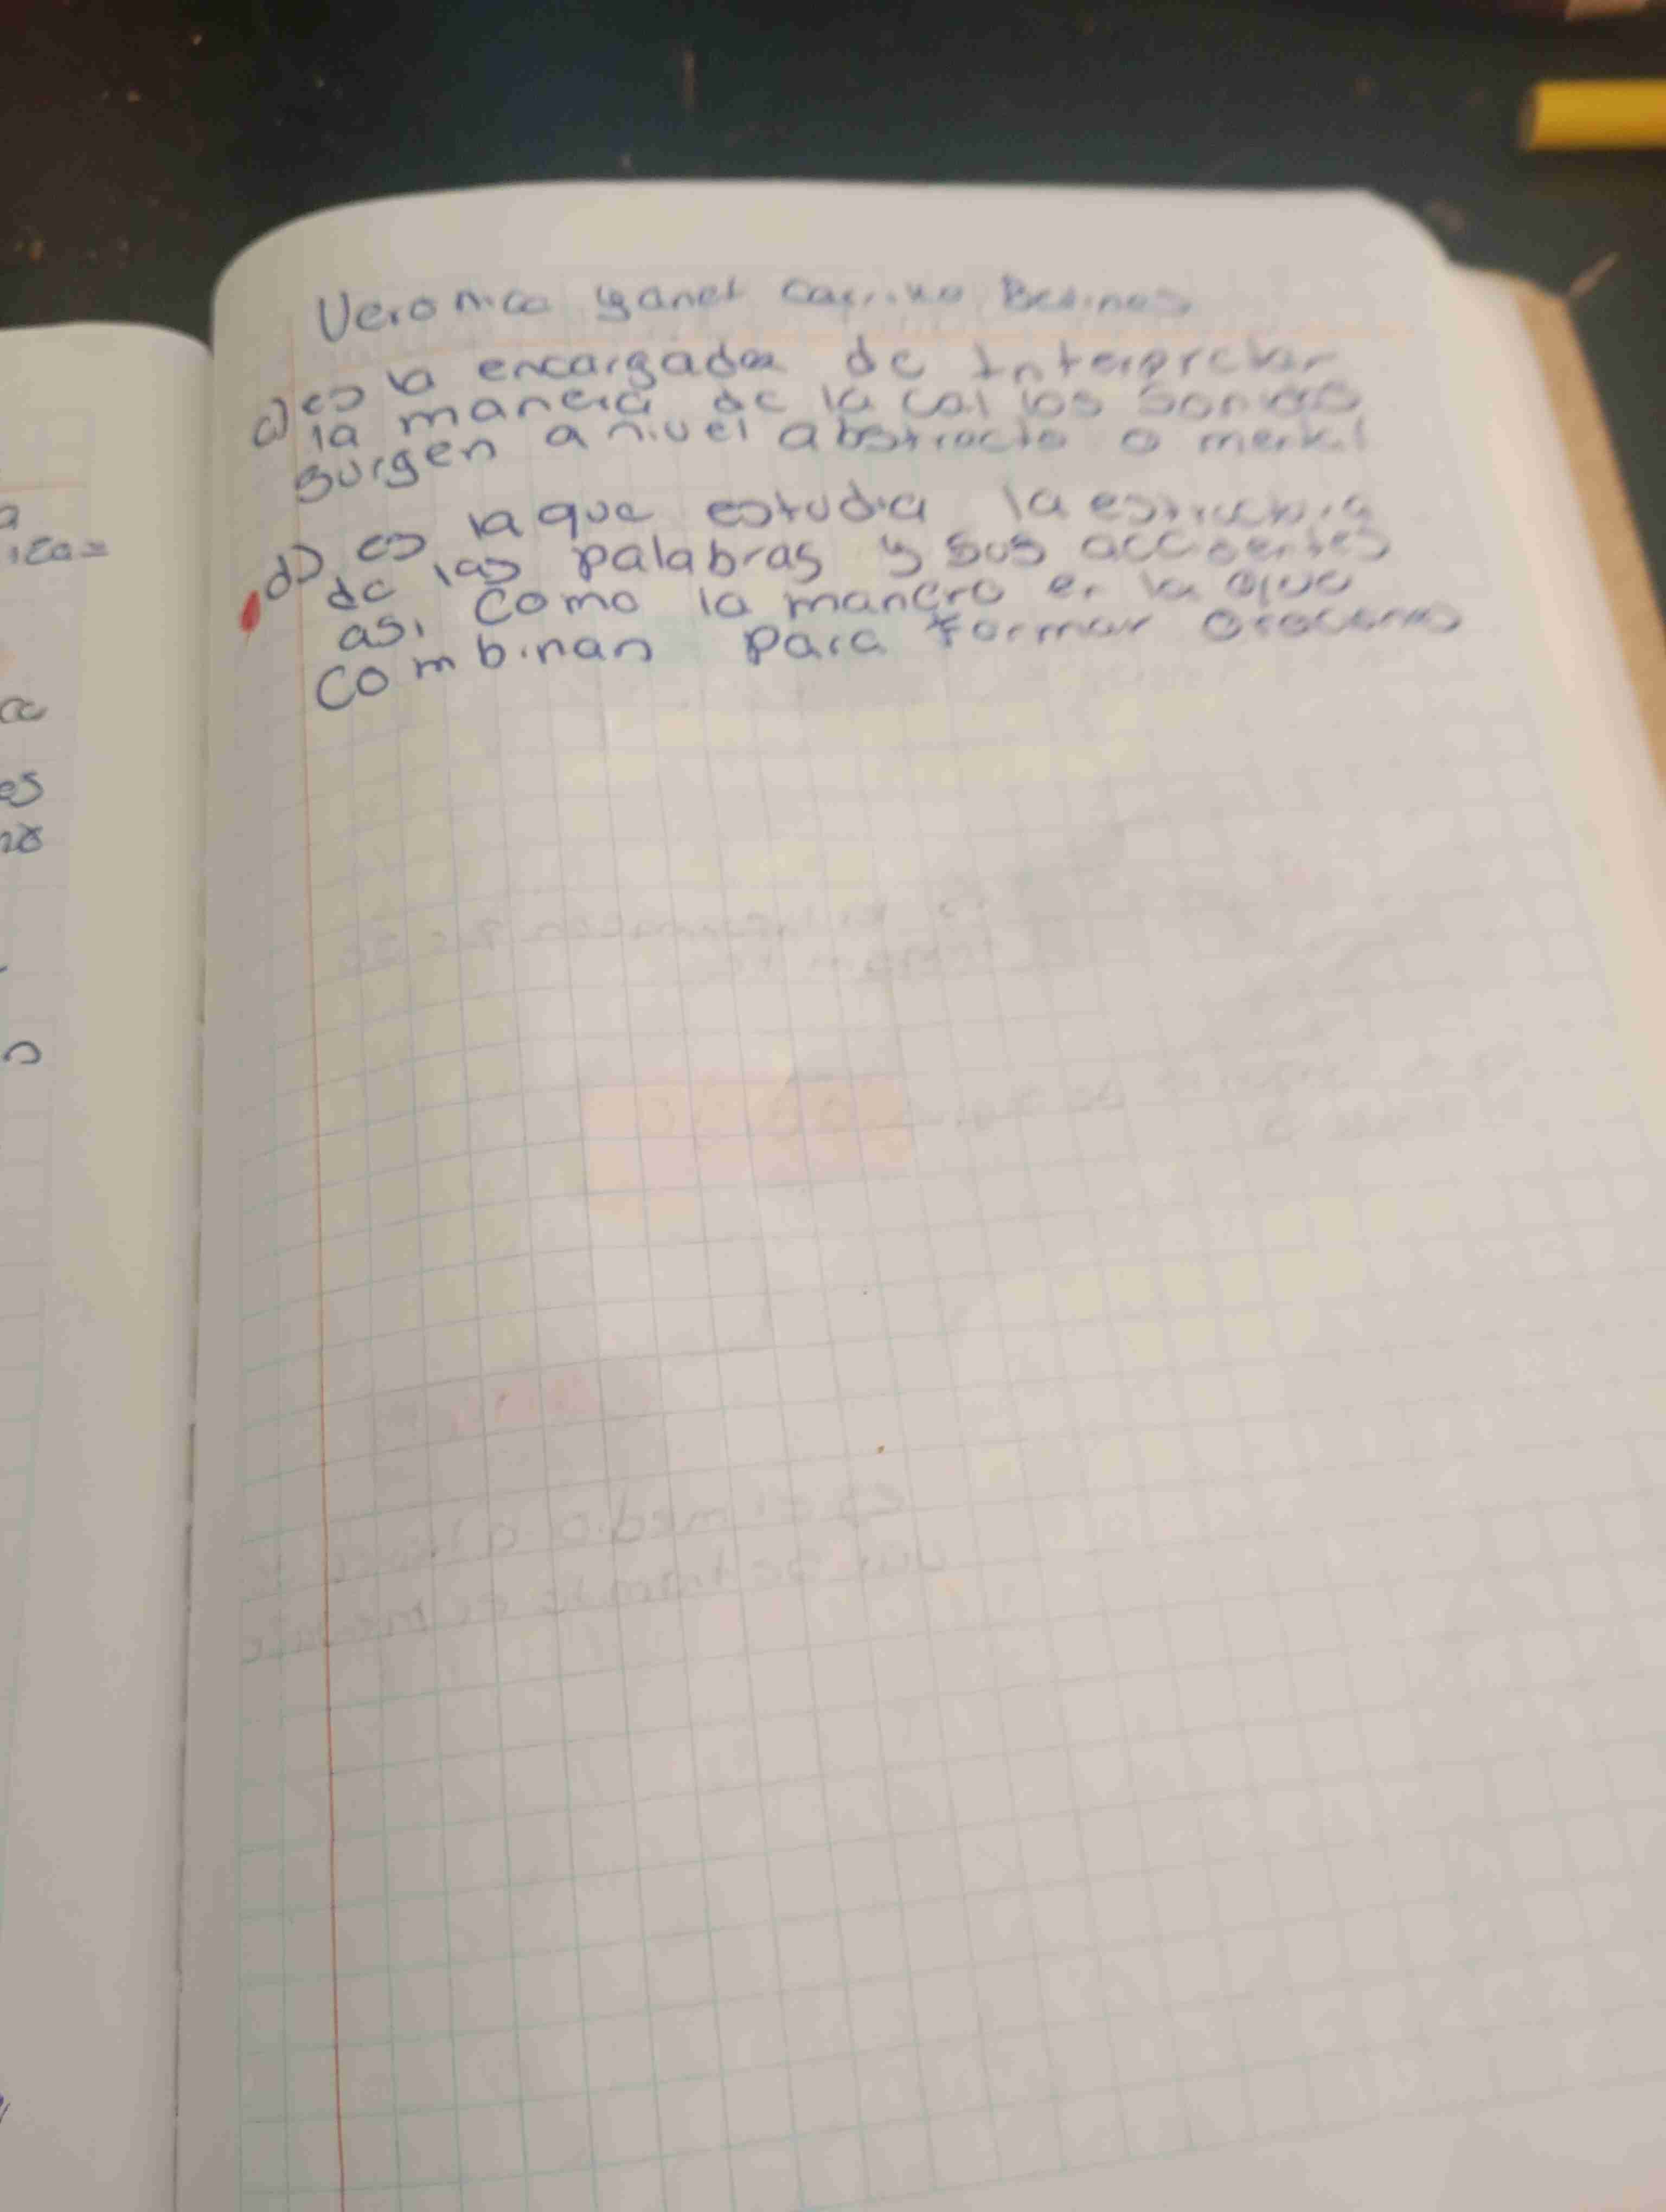 Veronica yanet
c) es la encargada de Interpretar
la manera de la cal los sonidos
surgen a nivel abstracto o mental
d) es la que estudia la estructura
de las palabras y sus accidentes
asi como la manera en la que
combinan para formar oraciones